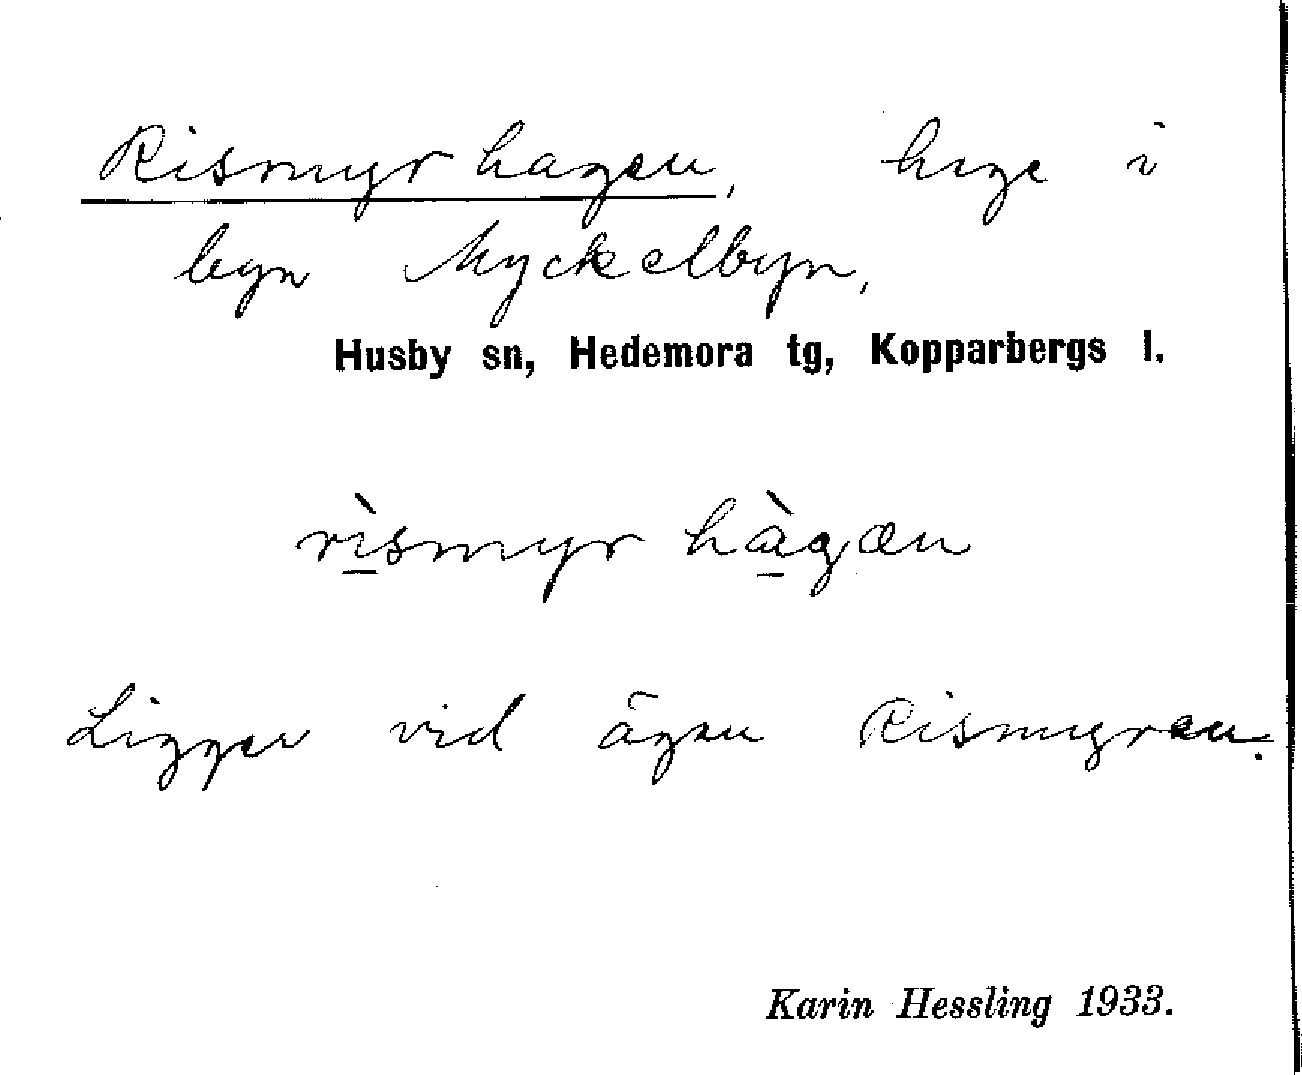 Rismyrhagen, hage i
byn Myckelbyn,
Husby sn, Hedemora tg, Kopparbergs l.
rìsmyr hàgæn
Ligger vid ägan Rismyren.
Karin Hessling 1933.